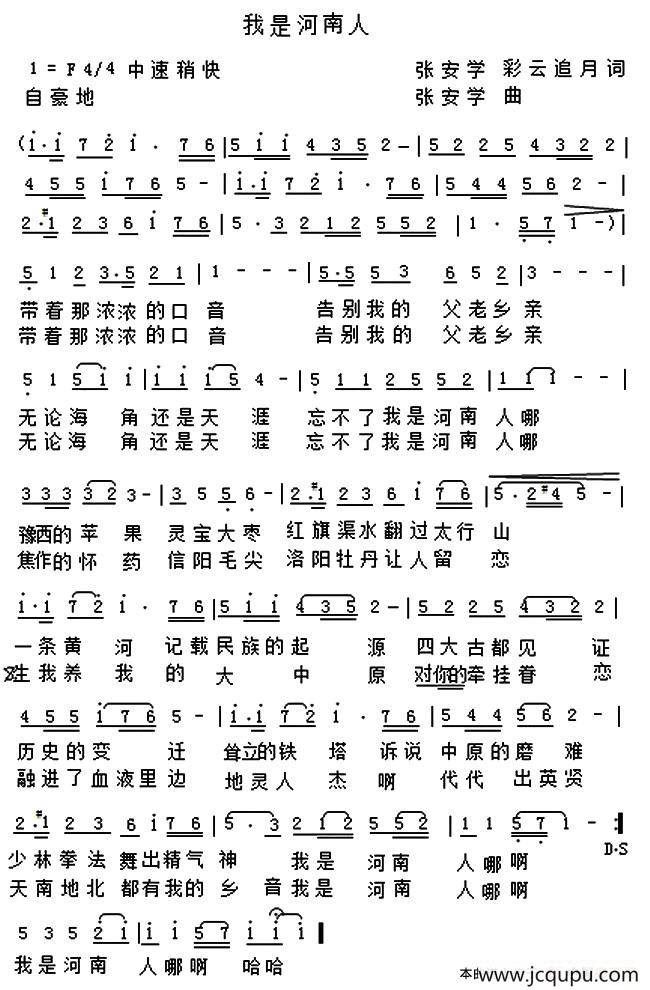 我是河南人
1=F 4/4 中速稍快 张安学 彩云追月词
自豪地 张安学 曲
(i·i 7 2 i · 76 | 5 i i 4 3 5 2 – | 5 2 2 5 4 3 2 2 |
4 5 5 i 7 6 5 - | i·i 7 2 i · 76 | 5 4 4 5 6 2 - |
2·#1 2 3 6 i 7 6 | 5 · 3 2 1 2 5 5 2 | 1 · 5 7 1 -) |
5 1 2 3·5 2 1 | 1 - - - | 5·5 5 3 6 5 2 | 3 - - - |
带着那浓浓的口 音 告别我的 父老乡亲
带着那浓浓的口 音 告别我的 父老乡亲
5 1 5 i i | i i i i 5 4 - | 5 1 1 2 5 5 2 | 1 1 1 - - |
无论海 角还是天 涯 忘不了我是河南 人哪
无论海 角还是天 涯 忘不了我是河南 人哪
3 3 3 3 2 3 - | 3 5 5 6 - | 2·#1 2 3 6 i 7 6 | 5·2 #4 5 - |
豫西的 苹 果 灵宝大枣 红旗渠水翻过太行 山
焦作的 怀 药 信阳毛尖 洛阳牡丹让人留 恋
i·i 7 2 i · 76 | 5 i i 4 3 5 2 - | 5 2 2 5 4 3 2 2 |
一条黄 河 记载民族的起 源 四大古都见 证
生我养 我 的 大 中 原 对你的牵挂眷 恋
4 5 5 i 7 6 5 - | i·i 7 2 i · 76 | 5 4 4 5 6 2 - |
历史的变 迁 耸立的铁 塔 诉说 中原的磨 难
融进了血液里边 地灵人 杰 啊 代代 出英贤
2·#1 2 3 6 i 7 6 | 5 · 3 2 1 2 5 5 2 | 1 1 5 7 1 - :|
D·S
少林拳法 舞出精气 神 我 是 河 南 人 哪 啊
天南地北 都有我的 乡 音我 是 河 南 人 哪 啊
5 3 5 2 i | i i 5 7 i i i i ‖
我是河 南 人 哪 啊 哈哈
www.jcqupu.com